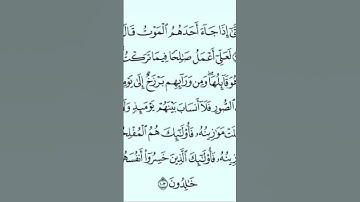 إِذَا جَآءَ أَحَدَهُمُ ٱلْمَوْتُ قَالَ
لَعَلِّىٓ أَعْمَلُ صَٰلِحًا فِيمَا تَرَكْتُ
هُوَ قَآئِلُهَا ۖ وَمِن وَرَآئِهِم بَرْزَخٌ إِلَىٰ
ٱلصُّورِ فَلَآ أَنسَابَ بَيْنَهُمْ يَوْمَئِذٍ
مَوَٰزِينُهُۥ فَأُو۟لَٰٓئِكَ هُمُ
فَأُو۟لَٰٓئِكَ ٱلَّذِينَ خَسِرُوٓا۟
خَٰلِدُونَ ١٠٣